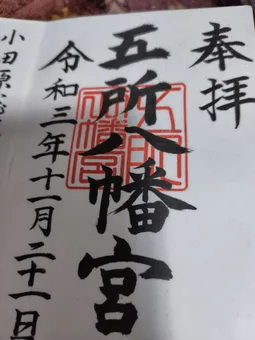 奉拝
五所八幡宮
令和三年十一月二十一日
小田原